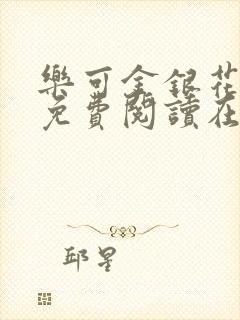 樂可金銀花
免費閱讀在
邱星